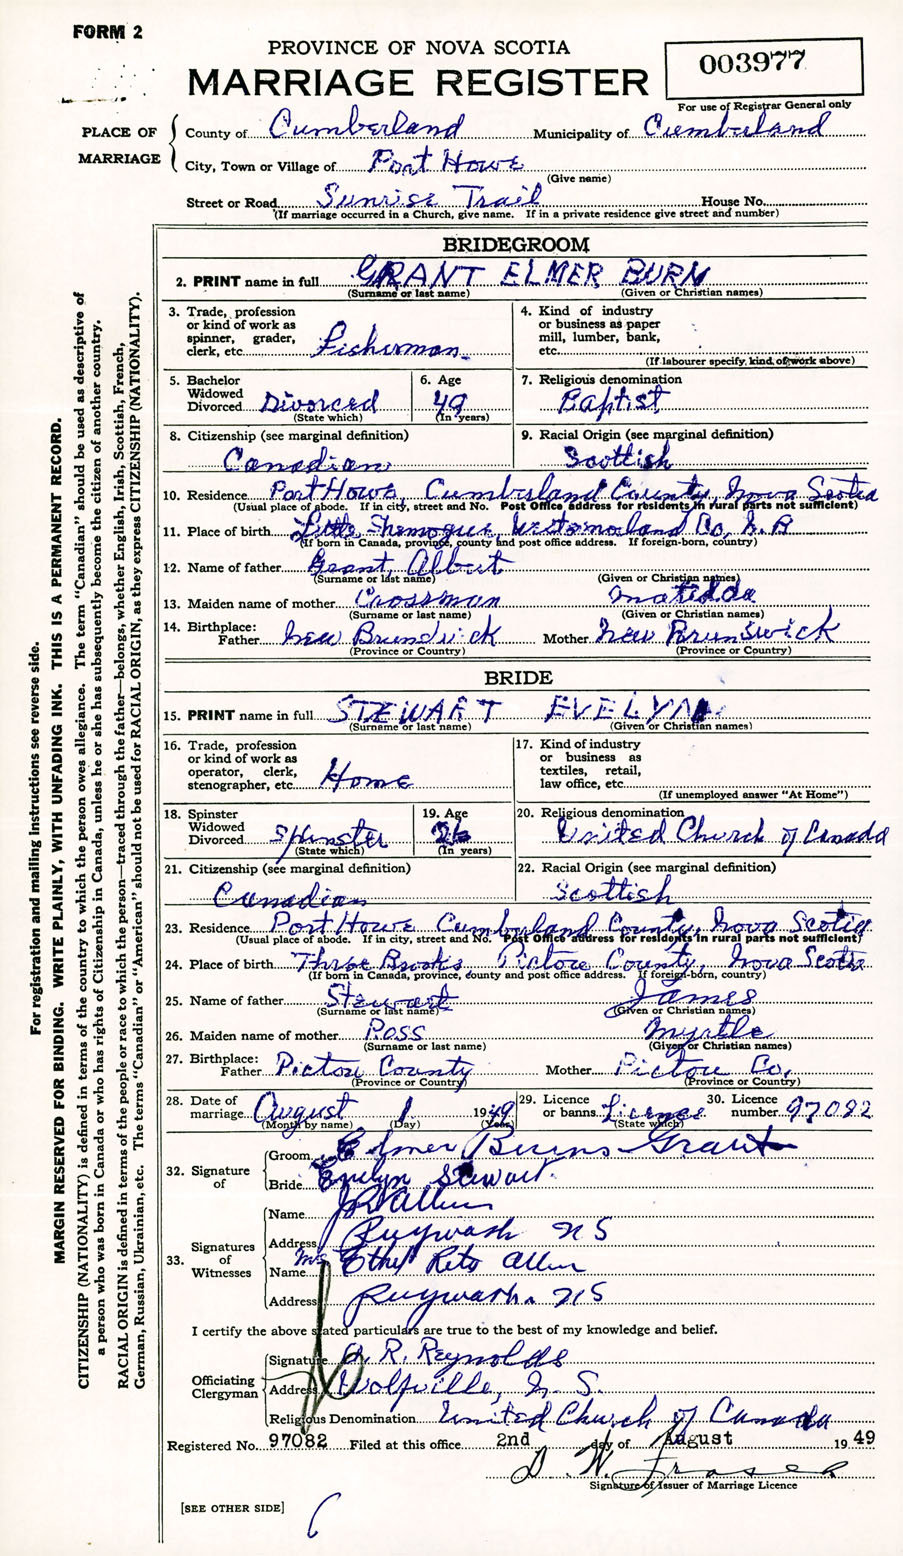 FORM 2
PROVINCE OF NOVA SCOTIA
MARRIAGE REGISTER
003977
For use of Registrar General only
PLACE OF MARRIAGE
County of Cumberland Municipality of Cumberland
City, Town or Village of Port Howe
(Give name)
Street or Road Sunrise Trail House No.
(If marriage occurred in a Church, give name. If in a private residence give street and number)
BRIDEGROOM
2. PRINT name in full GRANT ELMER BURN
(Surname or last name) (Given or Christian names)
3. Trade, profession or kind of work as spinner, grader, clerk, etc. Fisherman
4. Kind of industry or business as paper mill, lumber, bank, etc.
(If labourer specify, kind of work above)
5. Bachelor Widowed Divorced Divorced
(State which)
6. Age 49
(In years)
7. Religious denomination
Baptist
8. Citizenship (see marginal definition)
Canadian
9. Racial Origin (see marginal definition)
Scottish
10. Residence Port Howe, Cumberland County, Nova Scotia
(Usual place of abode. If in city, street and No. Post Office address for residents in rural parts not sufficient)
11. Place of birth Little Shemogue, Westmorland Co, N.B
(If born in Canada, province, county and post office address. If foreign-born, country)
12. Name of father Grant, Albert
(Surname or last name) (Given or Christian names)
13. Maiden name of mother Crossman Matilda
(Surname or last name) (Given or Christian names)
14. Birthplace: Father New Brunswick Mother New Brunswick
(Province or Country) (Province or Country)
BRIDE
15. PRINT name in full STEWART EVELYN
(Surname or last name) (Given or Christian names)
16. Trade, profession or kind of work as operator, clerk, stenographer, etc. Home
17. Kind of industry or business as textiles, retail, law office, etc.
(If unemployed answer "At Home")
18. Spinster Widowed Divorced Spinster
(State which)
19. Age 26
(In years)
20. Religious denomination
United Church of Canada
21. Citizenship (see marginal definition)
Canadian
22. Racial Origin (see marginal definition)
Scottish
23. Residence Port Howe Cumberland County, Nova Scotia
(Usual place of abode. If in city, street and No. Post Office address for residents in rural parts not sufficient)
24. Place of birth Three Brooks Pictou County, Nova Scotia
(If born in Canada, province, county and post office address. If foreign-born, country)
25. Name of father Stewart James
(Surname or last name) (Given or Christian names)
26. Maiden name of mother Ross Myrtle
(Surname or last name) (Given or Christian names)
27. Birthplace: Father Pictou County Mother Pictou Co.
(Province or Country) (Province or Country)
28. Date of marriage August 1 1949
(Month by name) (Day) (Year)
29. Licence or banns. License
(State which)
30. Licence number 97082
32. Signature of
Groom Elmer Burns Grant
Bride Evelyn Stewart
33. Signatures of Witnesses
Name Allen
Address Pugwash NS
Name Mrs Ethel Reto Allen
Address Pugwash. NS
I certify the above stated particulars are true to the best of my knowledge and belief.
Officiating Clergyman
Signature R. Reynolds
Address Wolfville, N. S.
Religious Denomination United Church of Canada
Registered No. 97082 Filed at this office 2nd day of August 1949
D. W. Fraser
Signature of Issuer of Marriage Licence
[SEE OTHER SIDE]
For registration and mailing instructions see reverse side.
MARGIN RESERVED FOR BINDING. WRITE PLAINLY, WITH UNFADING INK. THIS IS A PERMANENT RECORD.
CITIZENSHIP (NATIONALITY) is defined in terms of the country to which the person owes allegiance. The term "Canadian" should be used as descriptive of
a person who was born in Canada or who has rights of Citizenship in Canada, unless he or she has subsequently become the citizen of another country.
RACIAL ORIGIN is defined in terms of the people or race to which the person—traced through the father—belongs, whether English, Irish, Scottish, French,
German, Russian, Ukrainian, etc. The terms "Canadian" or "American" should not be used for RACIAL ORIGIN, as they express CITIZENSHIP (NATIONALITY).